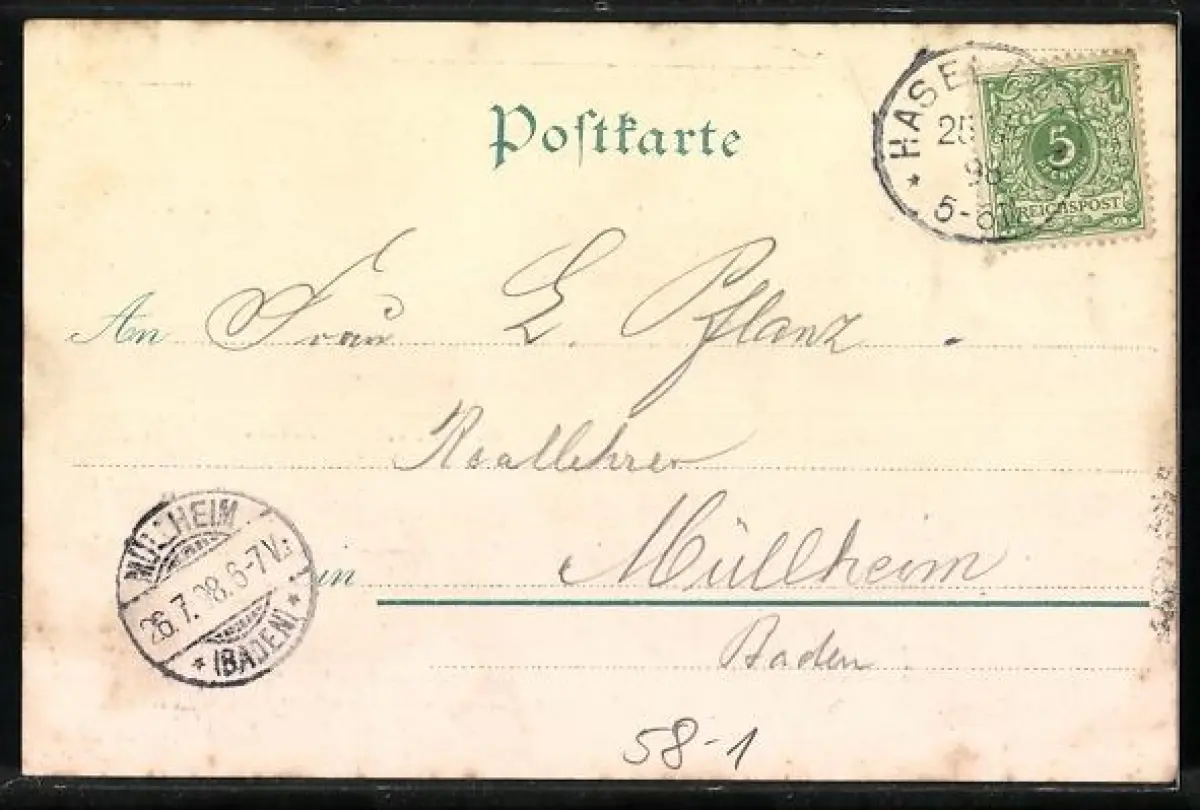 Postkarte
HASEL
25
98
5-6N
5
PFENNIG
REICHSPOST
An Frau E. Pflanz.
Reallehrer
in Müllheim
Baden
MÜLLHEIM
26.7.98.6-7V.
(BADEN)
58-1